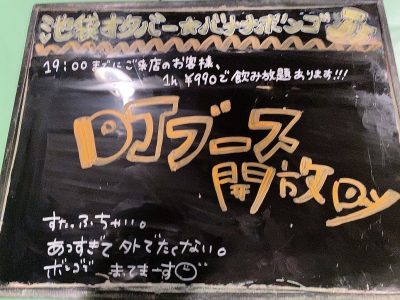 池袋オタバー☆バナナボンゴ
19:00までにご来店のお客様、
1h ¥990で飲み放題あります!!!
DJブース
開放Day
すたっふちゃい。
あつすぎて外でたくない。
ボンゴで まってまーす